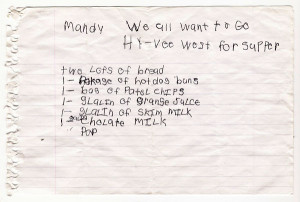 Mandy We all want to Go
Hy-Vee West for supper
two lofs of bread
1- Pakage of hotdog buns
1- bag of Potato CHIPS
1- galain of orange Juice
1- galain of skim MILK
1 Cholate MILK
" POP